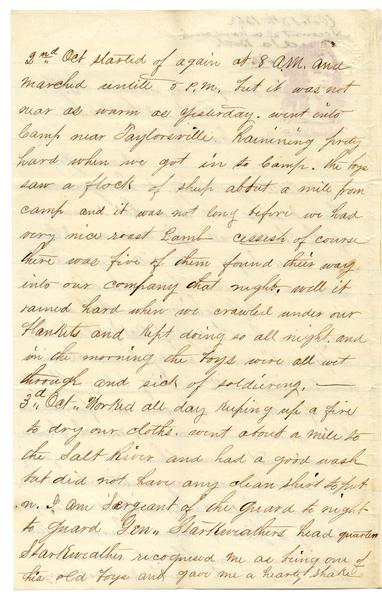 2nd Oct started of again at 8 A.M. and
marched untile 5 P.M. but it was not
near as warm as yesterday. went into
Camp near Taylorsville Rainining prety
hard when we got in to Camp. the boys
saw a flock of sheep about a mile from
camp and it was not long before we had
very nice roast Lamb cessish of course
there was five of them found their way
into our company that night. well it
rained hard when we crawled under our
blankets and kept doing so all night. and
in the morning the boys were all wet
through and sick of soldiering. —
3d Oct. Worked all day keeping up a fire
to dry our cloths. went about a mile to
the Salt River and had a good wash
but did not have any clean shirt to put
on. I am Sergeant of the guard to night
to guard Gen. Starkweathers head quarters
Starkweather recognised me as being one of
his old boys and gave me a hearty shake